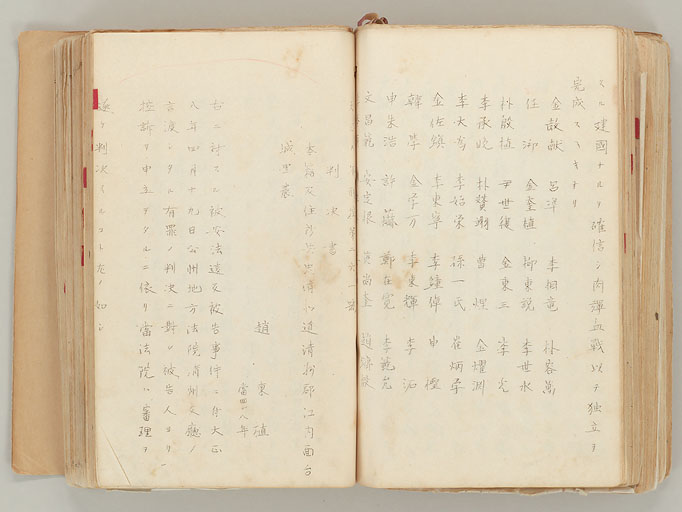 スル建國ナルヲ確信シ肉彈血戰以テ独立ヲ
完成スヘキナリ
金敎獻 呂準 李相竜 朴容萬
任 金奎植 柳東説 李世永
朴殷植 尹世復 金東三 李光
李承晩 朴賛翊 曺煜 金燿淵
李大 李始栄 孫一民 崔炳学
金佐鎮 李東寧 李鍾倬 申檉
韓 金学万 李東輝 李沰
申采浩 許爀 鄭在寛 李範允
文昌範 安定根 黄尚奎 趙
判決書
本籍及住 忠清北道清州郡江内面台
城里
趙東殖
當四十八年
右ニ対スル被安法違反被告事件ニ付大正
八年四月十九日公州地方法院清州支廳ノ
言渡シタル有罪ノ判決ニ對シ被告人ヨリ
控訴ヲ申立テタルニ依リ當法院ハ審理ヲ
遂ケ判決スルコト左ノ如シ